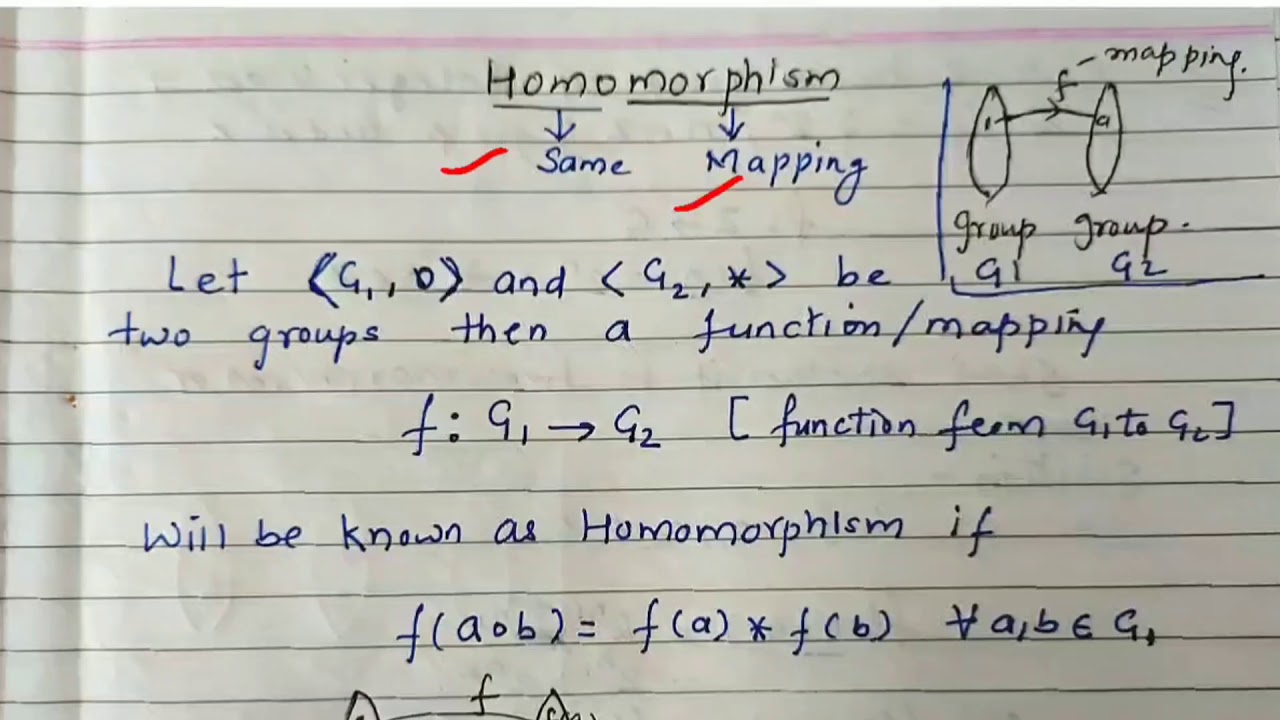 Homomorphism
Same Mapping
f - mapping.
1 a
group group.
G1 G2
Let <G₁, o> and <G₂, *> be
two groups then a function/mapping
f : G₁ → G₂ [ function from G₁ to G₂ ]
Will be known as Homomorphism if
f(aob) = f(a) * f(b) ∀ a,b ∈ G₁
f